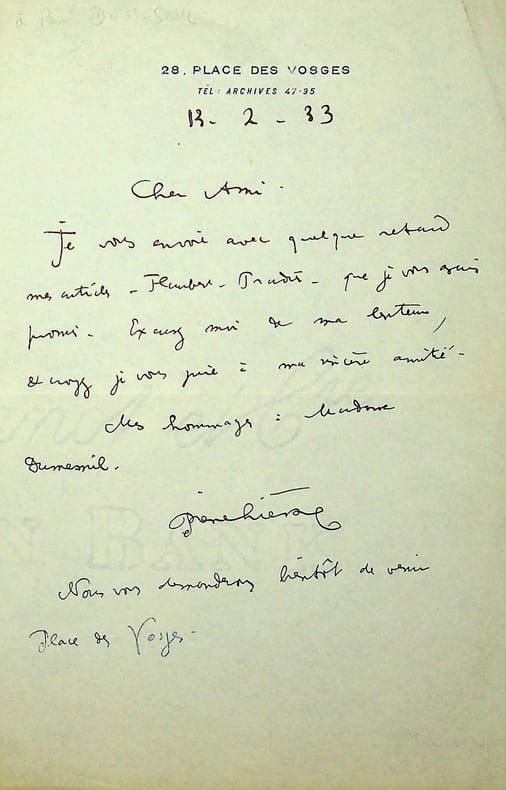 à René DUMESNIL
28, PLACE DES VOSGES
TÉL : ARCHIVES 47-95
13 - 2 - 33
Cher Ami.
Je vous envoie avec quelque retard
mes articles - Flaubert - - que je vous avais
promis. Excusez moi de ma lenteur,
& croyez je vous prie à ma sincère amitié.
Mes hommages à Madame
Dumesnil.
Nous vous demanderons bientôt de venir
Place des Vosges.
BANK